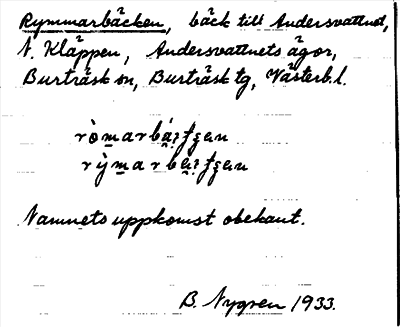 Rymmarbäcken, bäck till Andersvattnet,
N. Kläppen, Andersvattnets ägor,
Burträsk sn, Burträsk tg, Västerb. l.
Namnets uppkomst obekant.
B. Nygren 1933.